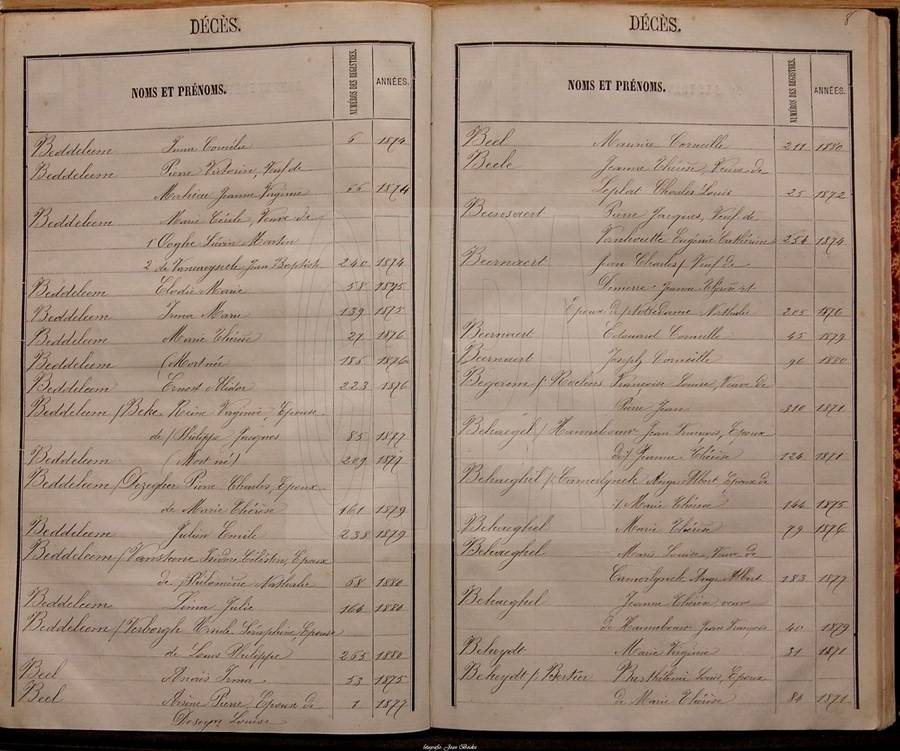 DÉCÈS.
NOMS ET PRÉNOMS.
NUMÉROS DES REGISTRES.
ANNÉES.
Beddeleem Irma Coralie 6 1874
Beddeleem Pierre Victorin, Veuf de
Mahieu Jeanne Virginie 66 1874
Beddeleem Marie Cécile, Veuve de
1 Coghe Liévin Martin
2 de Jean Baptiste 240 1874
Beddeleem Elodie Marie 58 1875
Beddeleem Irma Marie 139 1875
Beddeleem Marie Thérèse 27 1876
Beddeleem (Mort née) 185 1876
Beddeleem Ernest Alidor 223 1876
Beddeleem / Beke Reine Virginie Epouse
de / Philippe Jacques 85 1877
Beddeleem (Mort né) 209 1877
Beddeleem / Dezegher Pierre Charles, Epoux
de Marie Thérèse 161 1879
Beddeleem Julien Emile 238 1879
Beddeleem / Isidore Célestin, Epoux
de / Philomène Nathalie 68 1880
Beddeleem Julie 166 1880
Beddeleem / Verborgh Ursule Séraphine, Epouse
de Louis Philippe 255 1880
Beel Anaïs Irma 53 1875
Beel Arsène Pierre, Epoux de 1 1877
Louise
DÉCÈS.
8
NOMS ET PRÉNOMS.
NUMÉROS DES REGISTRES.
ANNÉES.
Beel Maurice Corneille 211 1880
Beele Jeanne Thérèse, Veuve de
Leplat Charles Louis 25 1872
Beernaert Pierre Jacques, Veuf de
Eugénie Cathérine 254 1874
Beernaert Jean Charles / Veuf de
Jeanne Thérèse et
Epoux de Nathalie 205 1870
Beernaert Edouard Corneille 45 1879
Beernaert Joseph Corneille 90 1880
Begerem / Roelens Françoise Louise, Veuve de
Pierre Jean 310 1871
Behaegel / Hannebouw Jean François, Epoux
de / Jeanne Thérèse 124 1871
Behaeghel / Camerlynck Ange Albert Epoux de
/ Marie Thérèse 144 1875
Behaeghel Marie Thérèse 79 1876
Behaeghel Marie Louise, Veuve de
Camerlynck Ange Albert 183 1877
Behaeghel Jeanne Thérèse veuve
de Hannebouw Jean François 40 1879
Beheydt Marie Virginie 31 1871
Beheydt / Bertier Barthélémi Louis, Epoux
de Marie Thérèse 84 1871
fotografie Jean Becke